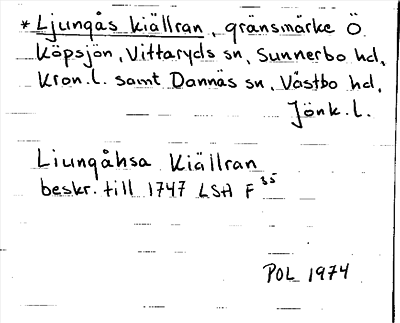 * Ljungås kiällran, gränsmärke Ö
Köpsjön, Vittaryds sn, Sunnerbo hd,
Kron. l. samt Dannäs sn, Västbo hd,
Jönk. l.
Liungåhsa Kiällran
beskr. till 1747 LSH F 35
POL 1974